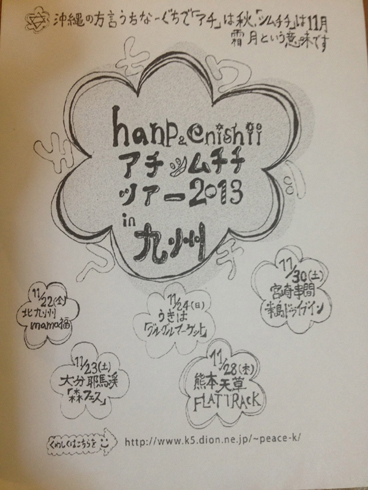 沖縄の方言うちなーぐちで「アチ」は秋、「ツムチチ」は11月
霜月という意味です
hanp&enishii
アチツムチチ
ツアー2013
in
九州
11/22(金)
北九州
mama福
11/23(土)
大分耶馬渓
「森フェス」
11/24(日)
うきは
11/28(木)
熊本天草
FLATTRACK
11/30(土)
宮崎串間
ドライブイン
くわしくはこちらを
http://www.k5.dion.ne.jp/~peace-k/